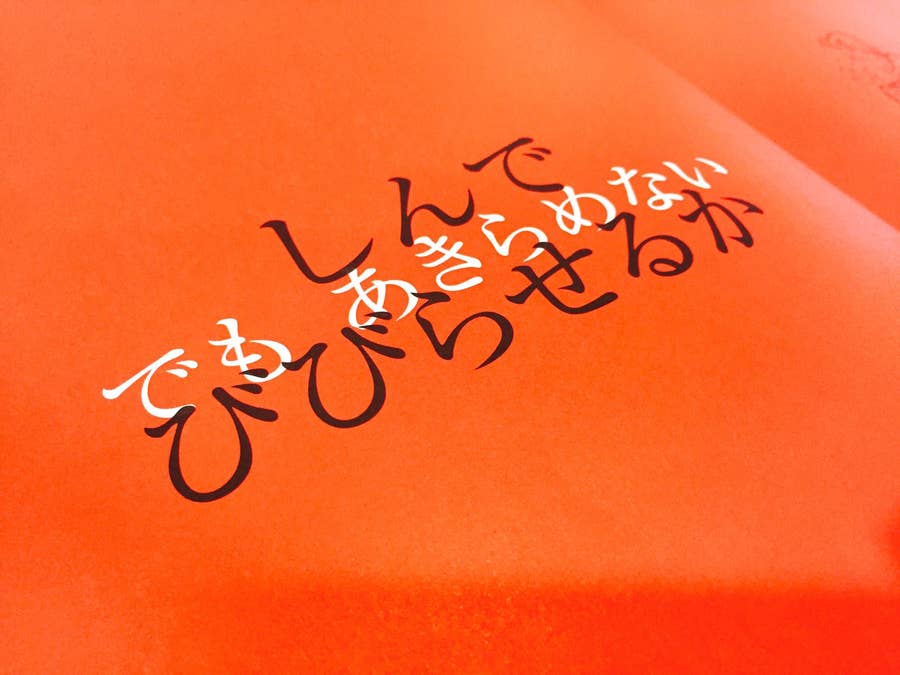 しんで
でも あきらめない
びびらせるか